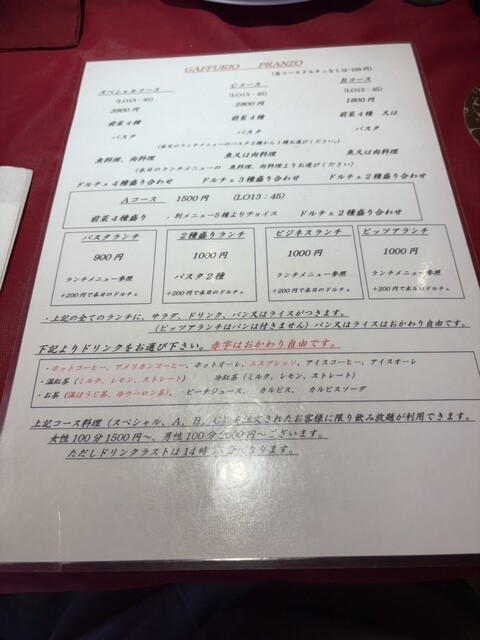 GAFFURIO PRANZO
(各コースドルチェなしは-100円)
スペシャルコース Cコース Bコース
(LO13:45) (LO13:45) (LO13:45)
3800円 2800円 1800円
前菜4種 前菜4種 前菜4種 又は
パスタ パスタ パスタ
(本日のランチメニューのパスタ2種から1種お選びください。)
魚料理、肉料理 魚又は肉料理 魚又は肉料理
(本日のランチメニューの 魚料理、肉料理よりお選びください)
ドルチェ4種盛り合わせ ドルチェ3種盛り合わせ ドルチェ2種盛り合わせ
Aコース 1500円 (LO13:45)
前菜4種盛り 、別メニュー5種よりチョイス ドルチェ2種盛り合わせ
パスタランチ 2種盛りランチ ビジネスランチ ピッツアランチ
900円 1000円 1000円 1000円
ランチメニュー参照 パスタ2種 ランチメニュー参照 ランチメニュー参照
+200円で本日のドルチェ +200円で本日のドルチェ +200円で本日のドルチェ +200円で本日のドルチェ
・上記の全てのランチに、サラダ、ドリンク、パン又はライスがつきます。
(ピッツアランチはパンは付きません) パン又はライスはおかわり自由です。
下記よりドリンクをお選び下さい。赤字はおかわり自由です。
・ホットコーヒー、アメリカンコーヒー、ホットオーレ、エスプレッソ、アイスコーヒー、アイスオーレ
・温紅茶(ミルク、レモン、ストレート) 冷紅茶(ミルク、レモン、ストレート)
・お茶(温ほうじ茶、冷ウーロン茶)、 ピーチジュース、 カルピス、 カルピスソーダ
上記コース料理(スペシャル、A、B、C)を注文されたお客様に限り飲み放題が利用できます。
女性100分1500円~、男性100分2000円~ございます。
ただしドリンクラストは14時 になります。